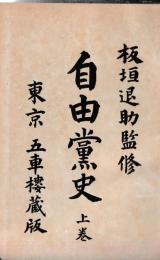 板垣退助監修
自由黨史 上卷
東京 五車樓藏版